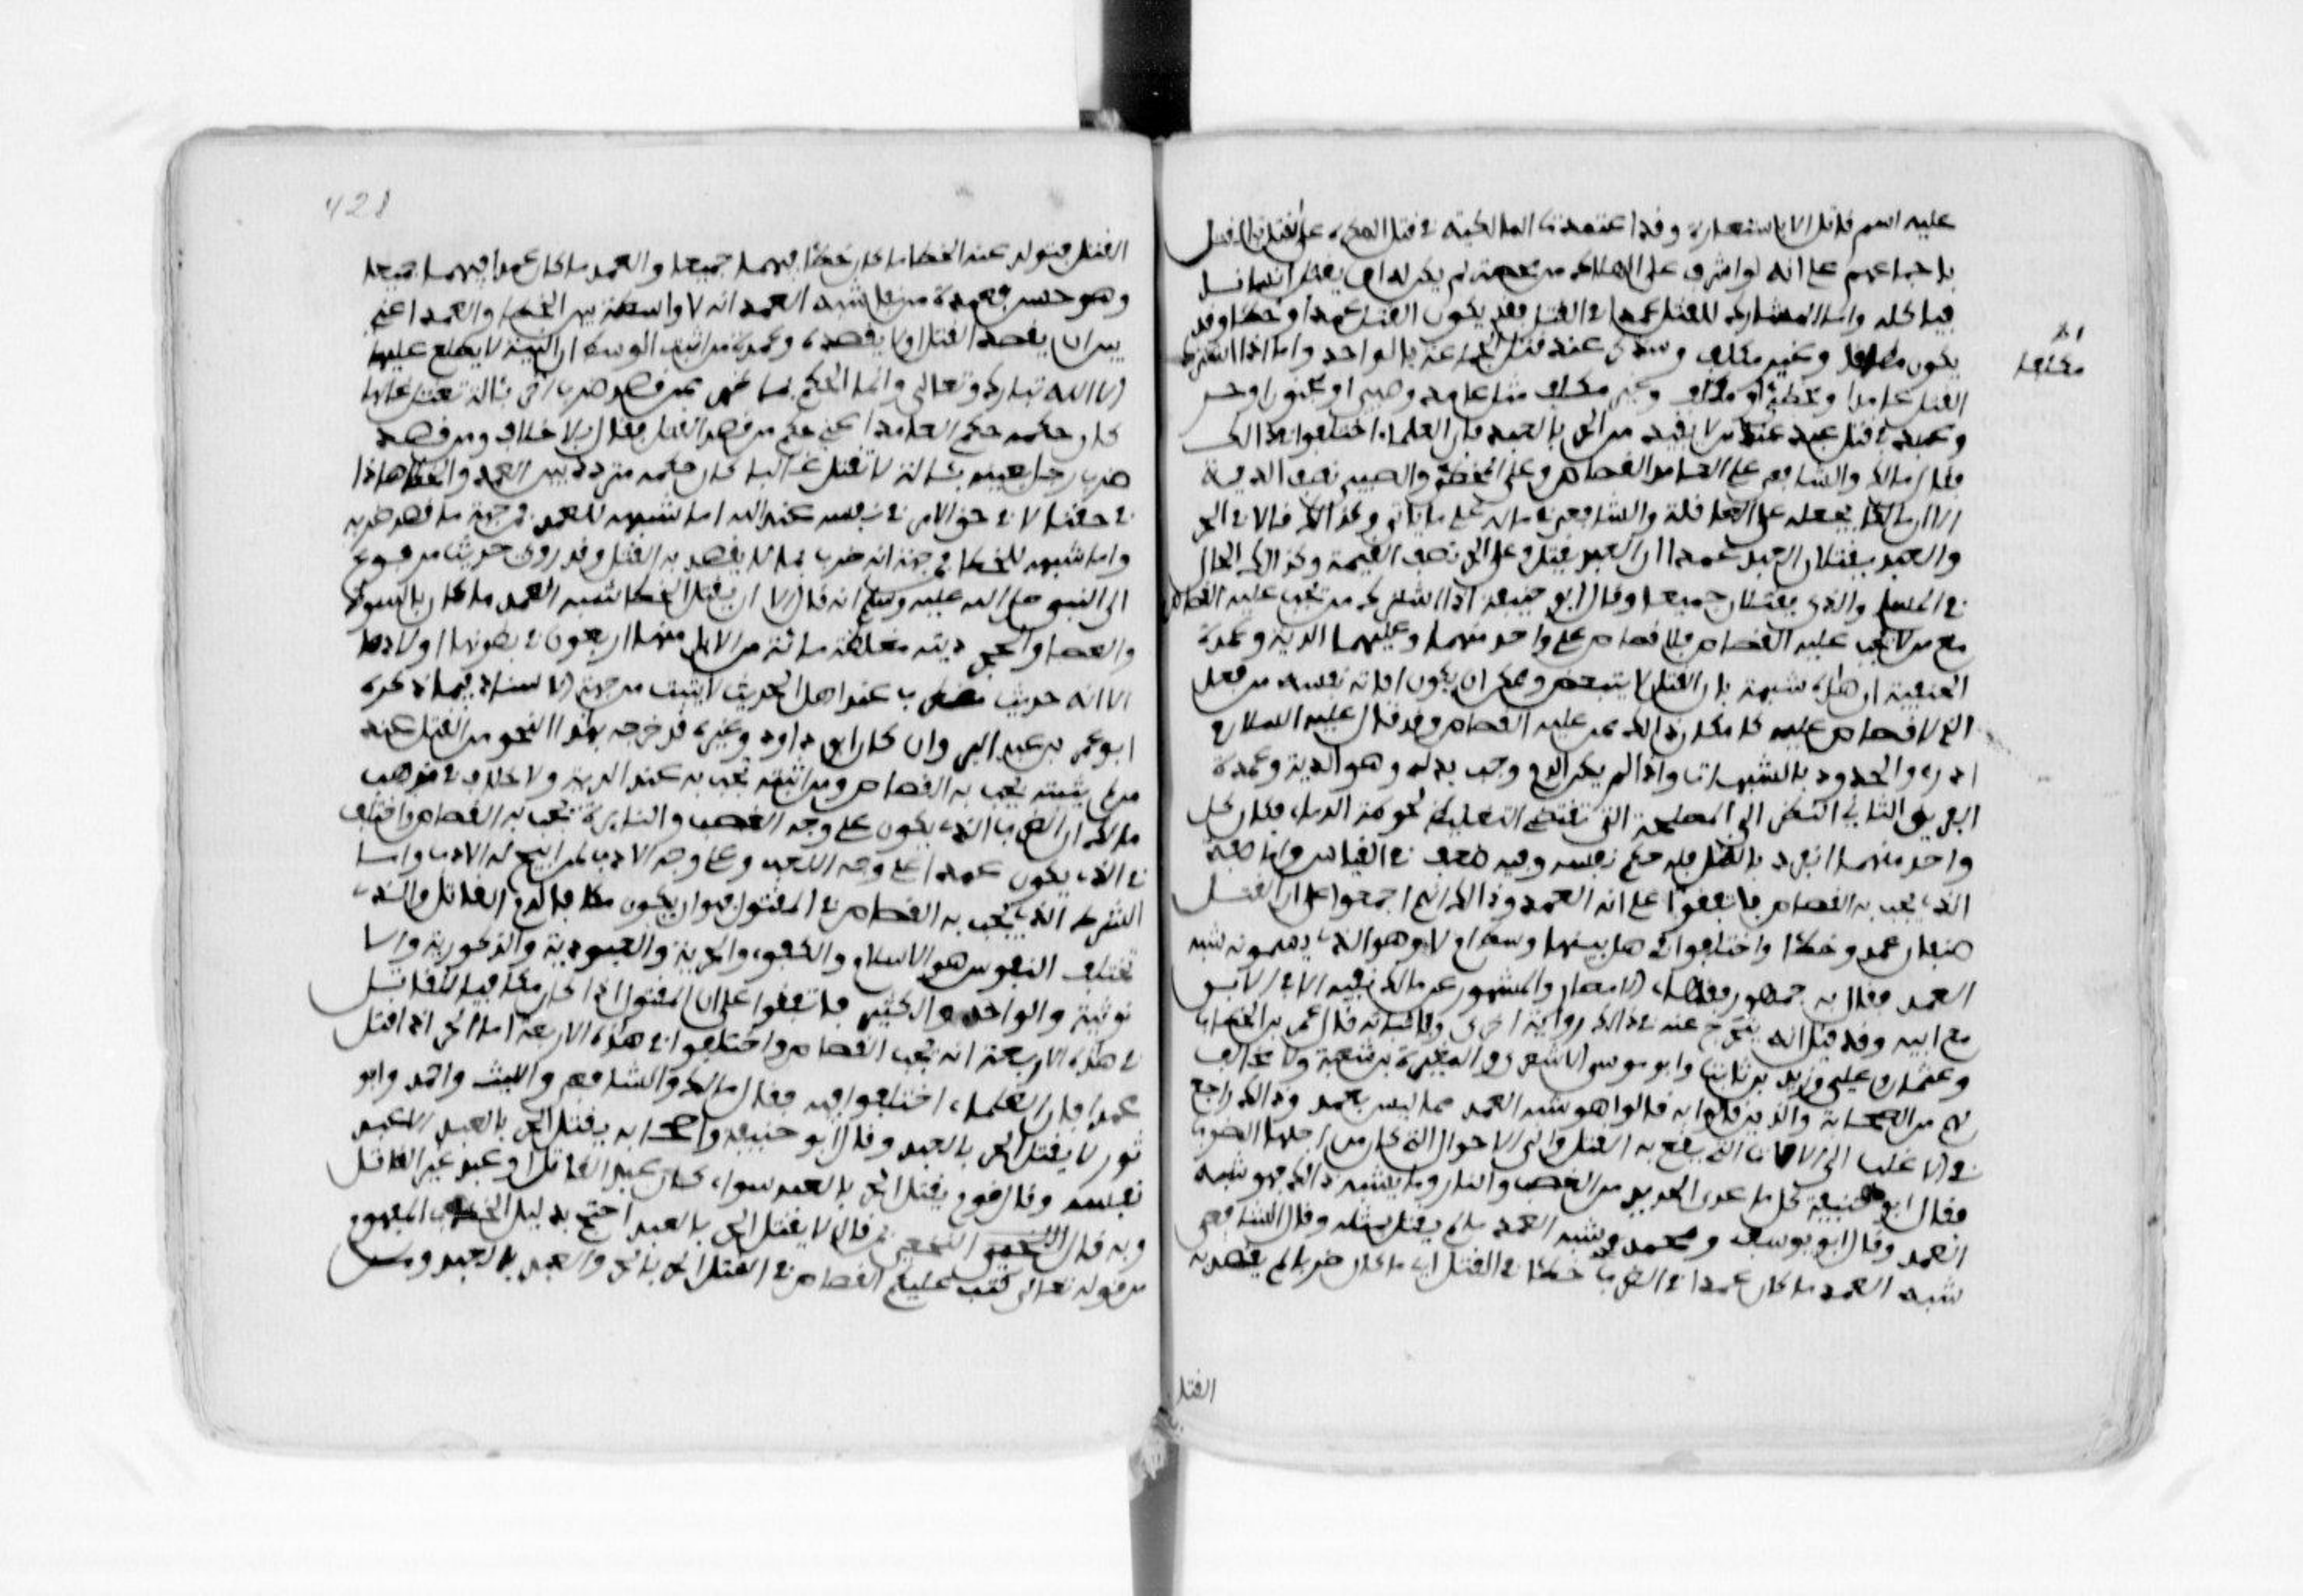 عليه اسم قاتل الا باستعارة وقد اعتمدت المالكية في قتل المكره على القتل بالقتل
باجماعهم على انه لو اشرف على الهلاك من مخمصة لم يكن له ان يقتل انسانا
فياكله واما المشارك للقاتل عمدا في القتل فقد يكون القتل عمدا وخطا وقد
يكون مكلفا وغير مكلف وسنذكر عند قتل الجماعة بالواحد واما اذا اشترك في
القتل عامدا ومخطئ او مكلف وغير مكلف مثل عامد وصبي او مجنون او حر
وعبد في قتل عبد عند من لا يقيد من الحر بالعبد فان العلماء اختلفوا في ذالك
فقال مالك والشافعي على العامد القصاص وعلى المخطئ والصبي نصف الدية
الا ان مالكا يجعله على العاقلة والشافعي في ماله على ما ياتي وكذالك قالا في الحر
والعبد يقتلان العبد عمدا ان العبد يقتل وعلى الحر نصف القيمة وكذالك الحال
في المسلم والذمي يقتلان جميعا وقال ابو حنيفة اذا اشترك من يجب عليه القصاص
مع من لا يجب عليه القصاص فلا قصاص على واحد منهما وعليهما الدية وعمدة
الحنفية ان هذه شبهة فان القتل لا يتبعض وممكن ان يكون افاتة نفسه من فعل
الذي لا قصاص عليه كامكان ذالك ممن عليه القصاص وقد قال عليه السلام
ادرءوا الحدود بالشبهات واذا لم يكن الدم وجب بدله وهو الدية وعمدة
الفريق الثاني النظر الى المصلحة التي تقتضي التغليظ لحوطة الدماء فكان كل
واحد منهما انفرد بالقتل فله حكم نفسه وفيه ضعف في القياس واما صفة
الذي يجب به القصاص فاتفقوا على انه العمد وذالك انهم اجمعوا على ان القتل
صنفان عمد وخطا واختلفوا في هل بينهما وسط ام لا وهو الذي يسمونه شبه
العمد فقال به جمهور فقهاء الامصار والمشهور عن مالك نفيه الا في الابن
مع ابيه وقد قيل انه يتخرج عنه في ذالك رواية اخرى وباثباته قال عمر بن الخطاب
وعثمان وعلي وزيد بن ثابت وابو موسى الاشعري والمغيرة بن شعبة ولا مخالف
لهم من الصحابة والذين قالوا به قالوا هو شبه العمد مما ليس بعمد وذالك راجع
في الاغلب الى الالات التي يقع بها القتل والى الاحوال التي كان من اجلها الضرب
فقال ابو حنيفة كل ما عدى الحديد من القصب والنار وما يشبه ذالك فهو شبه
العمد وقال ابو يوسف ومحمد شبه العمد ما لم يقتل مثله وقال الشافعي
شبه العمد ما كان عمدا في الضرب خطا في القتل اي ما كان ضربا لم يقصد به
القتل
مكلفا
428
القتل فتولد عنه الخطا ما كان خطا فيهما جميعا والعمد ما كان عمدا فيهما جميعا
وهو حسن فعمدة من نفى شبه العمد انه لا واسطة بين الخطا والعمد اعني
بين ان يقصد القتل او لا يقصده وعمدة من اثبت الوسط ان النية لا يطلع عليها
الا الله تبارك وتعالى وانما الحكم بما ظهر فمن قصد ضرب اخر بئالة تقتل غالبا
كان حكمه حكم العامد اعني حكم من قصد القتل فقتل بلا خلاف ومن قصد
ضرب رجل بعينه بئالة لا تقتل غالبا كان حكمه متردد بين العمد والخطا هاذا
في حقنا لا في حق الامر في نفسه عند الله اما شبهه للعمد فمن جهة ما قصد ضربه
واما شبهه للخطا فمن جهة انه ضرب بما لا يقصد به القتل وقد روي حديث مرفوع
الى النبي صلى الله عليه وسلم انه قال الا ان قتل الخطا شبه العمد ما كان بالسوط
والعصا والحجر ديته مغلظة مائة من الابل منها اربعون في بطونها اولادها
الا انه حديث مضطرب عند اهل الحديث لا يثبت من جهة الاسناد فيما ذكره
ابو عمر بن عبد البر وان كان ابو داود وغيره قد خرجه فهذا النحو من القتل عند
من لم يثبته يجب به القصاص ومن اثبته تجب به عنده الدية ولا خلاف في مذهب
مالك ان الضرب الذي يكون على وجه الغضب والنائرة يجب به القصاص واختلف
في الذي يكون عمدا على وجه اللعب وعلى وجه الادب لمن ابيح له الادب واما
الشرط الذي يجب به القصاص في المقتول فهو ان يكون مكافيا لدم القاتل والذي
تختلف النفوس هو الاسلام والكفر والحرية والعبودية والذكورية والا
نوثية والواحد والكثير فاتفقوا على ان المقتول اذا كان مكافيا للقاتل
في هذه الاربعة انه يجب القصاص واختلفوا في هذه الاربعة اما الحر اذا قتل
عمدا فان العلماء اختلفوا فيه فقال مالك والشافعي والليث واحمد وابو
ثور لا يقتل الحر بالعبد وقال ابو حنيفة واصحابه يقتل الحر بالعبد الا عبد
نفسه وقال قوم يقتل الحر بالعبد سواء كان عبد القاتل او عبد غير القاتل
وبه قال النخعي فمن قال لا يقتل الحر بالعبد احتج بدليل الخطاب المفهوم
من قوله تعالى كتب عليكم القصاص في القتلى الحر بالحر والعبد بالعبد ومن